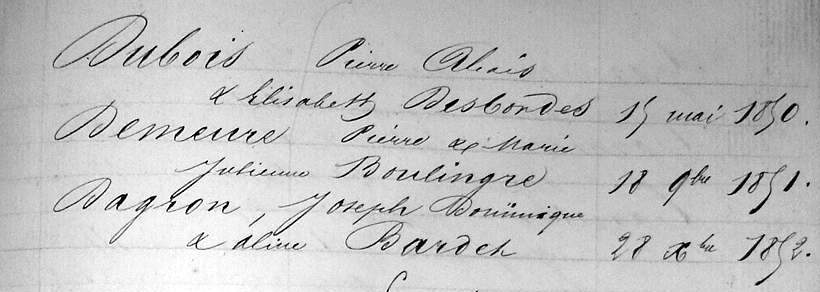 Dubois Pierre Alexis
& Elisabeth Desbordes 15 mai 1850.
Demeure Pierre & Marie
Julienne Boulingre 18 9bre 1851.
Dagron, Joseph Dominique
& Aline Bardet 28 Xbre 1852.